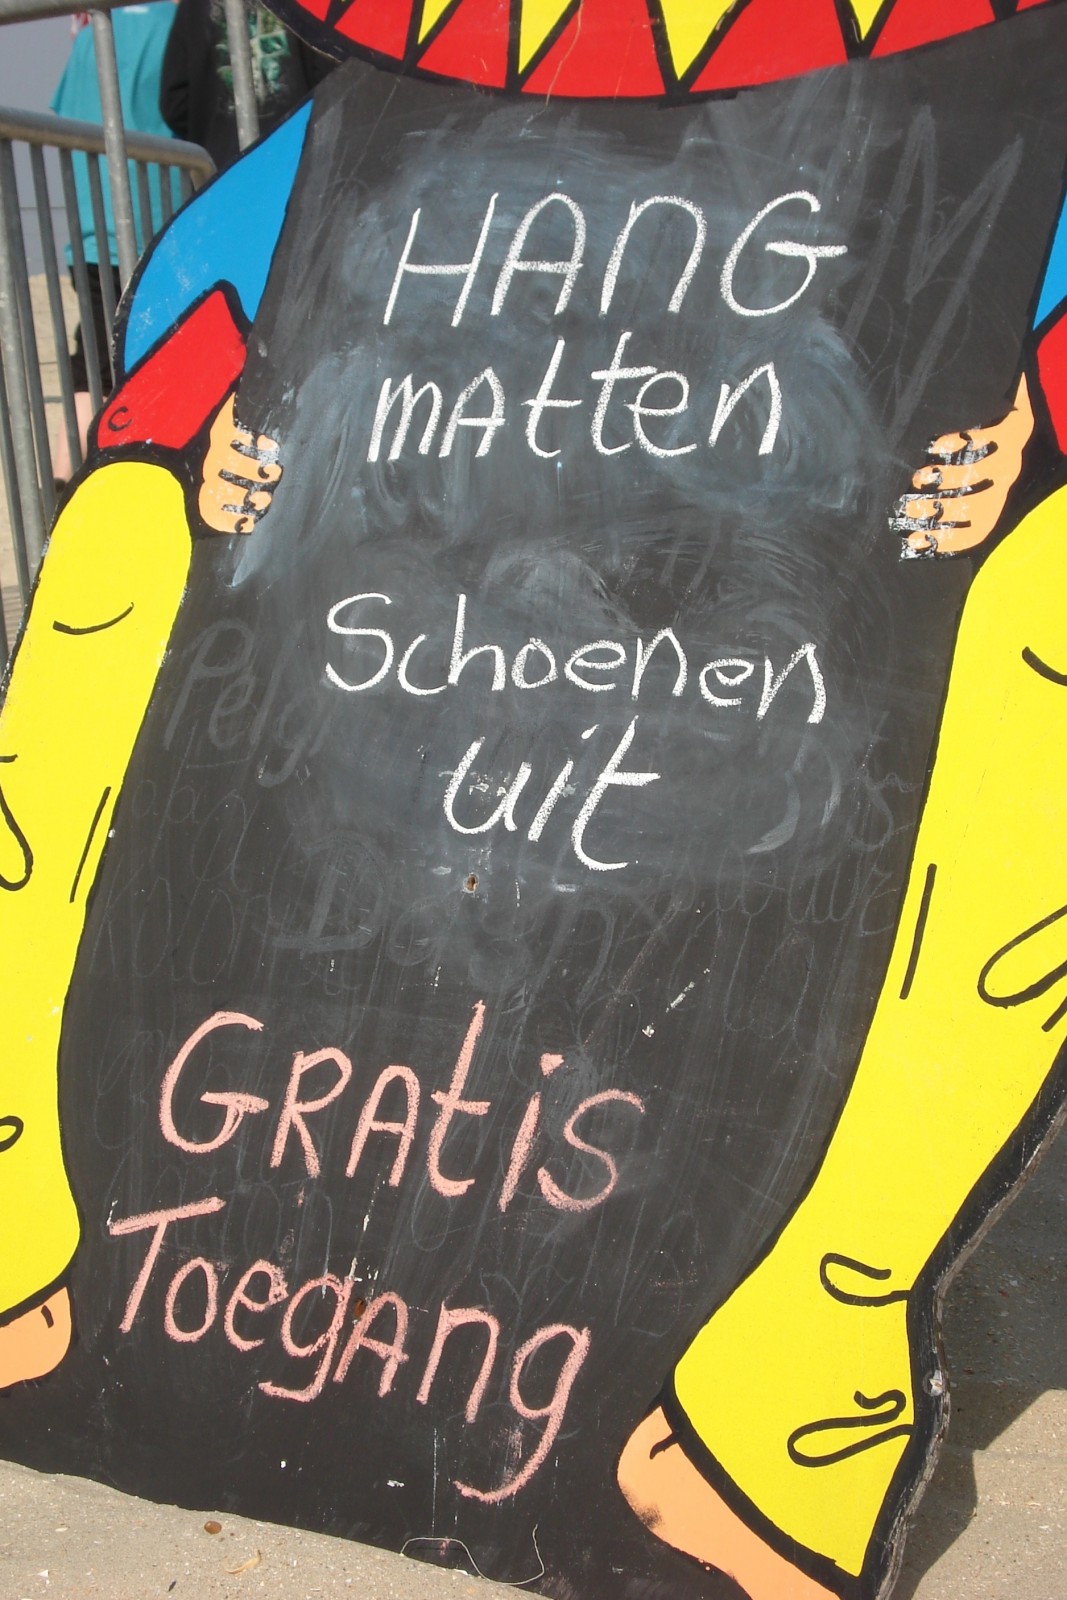 HANG
mAtten
Schoenen
uit
GRAtis
ToegAng